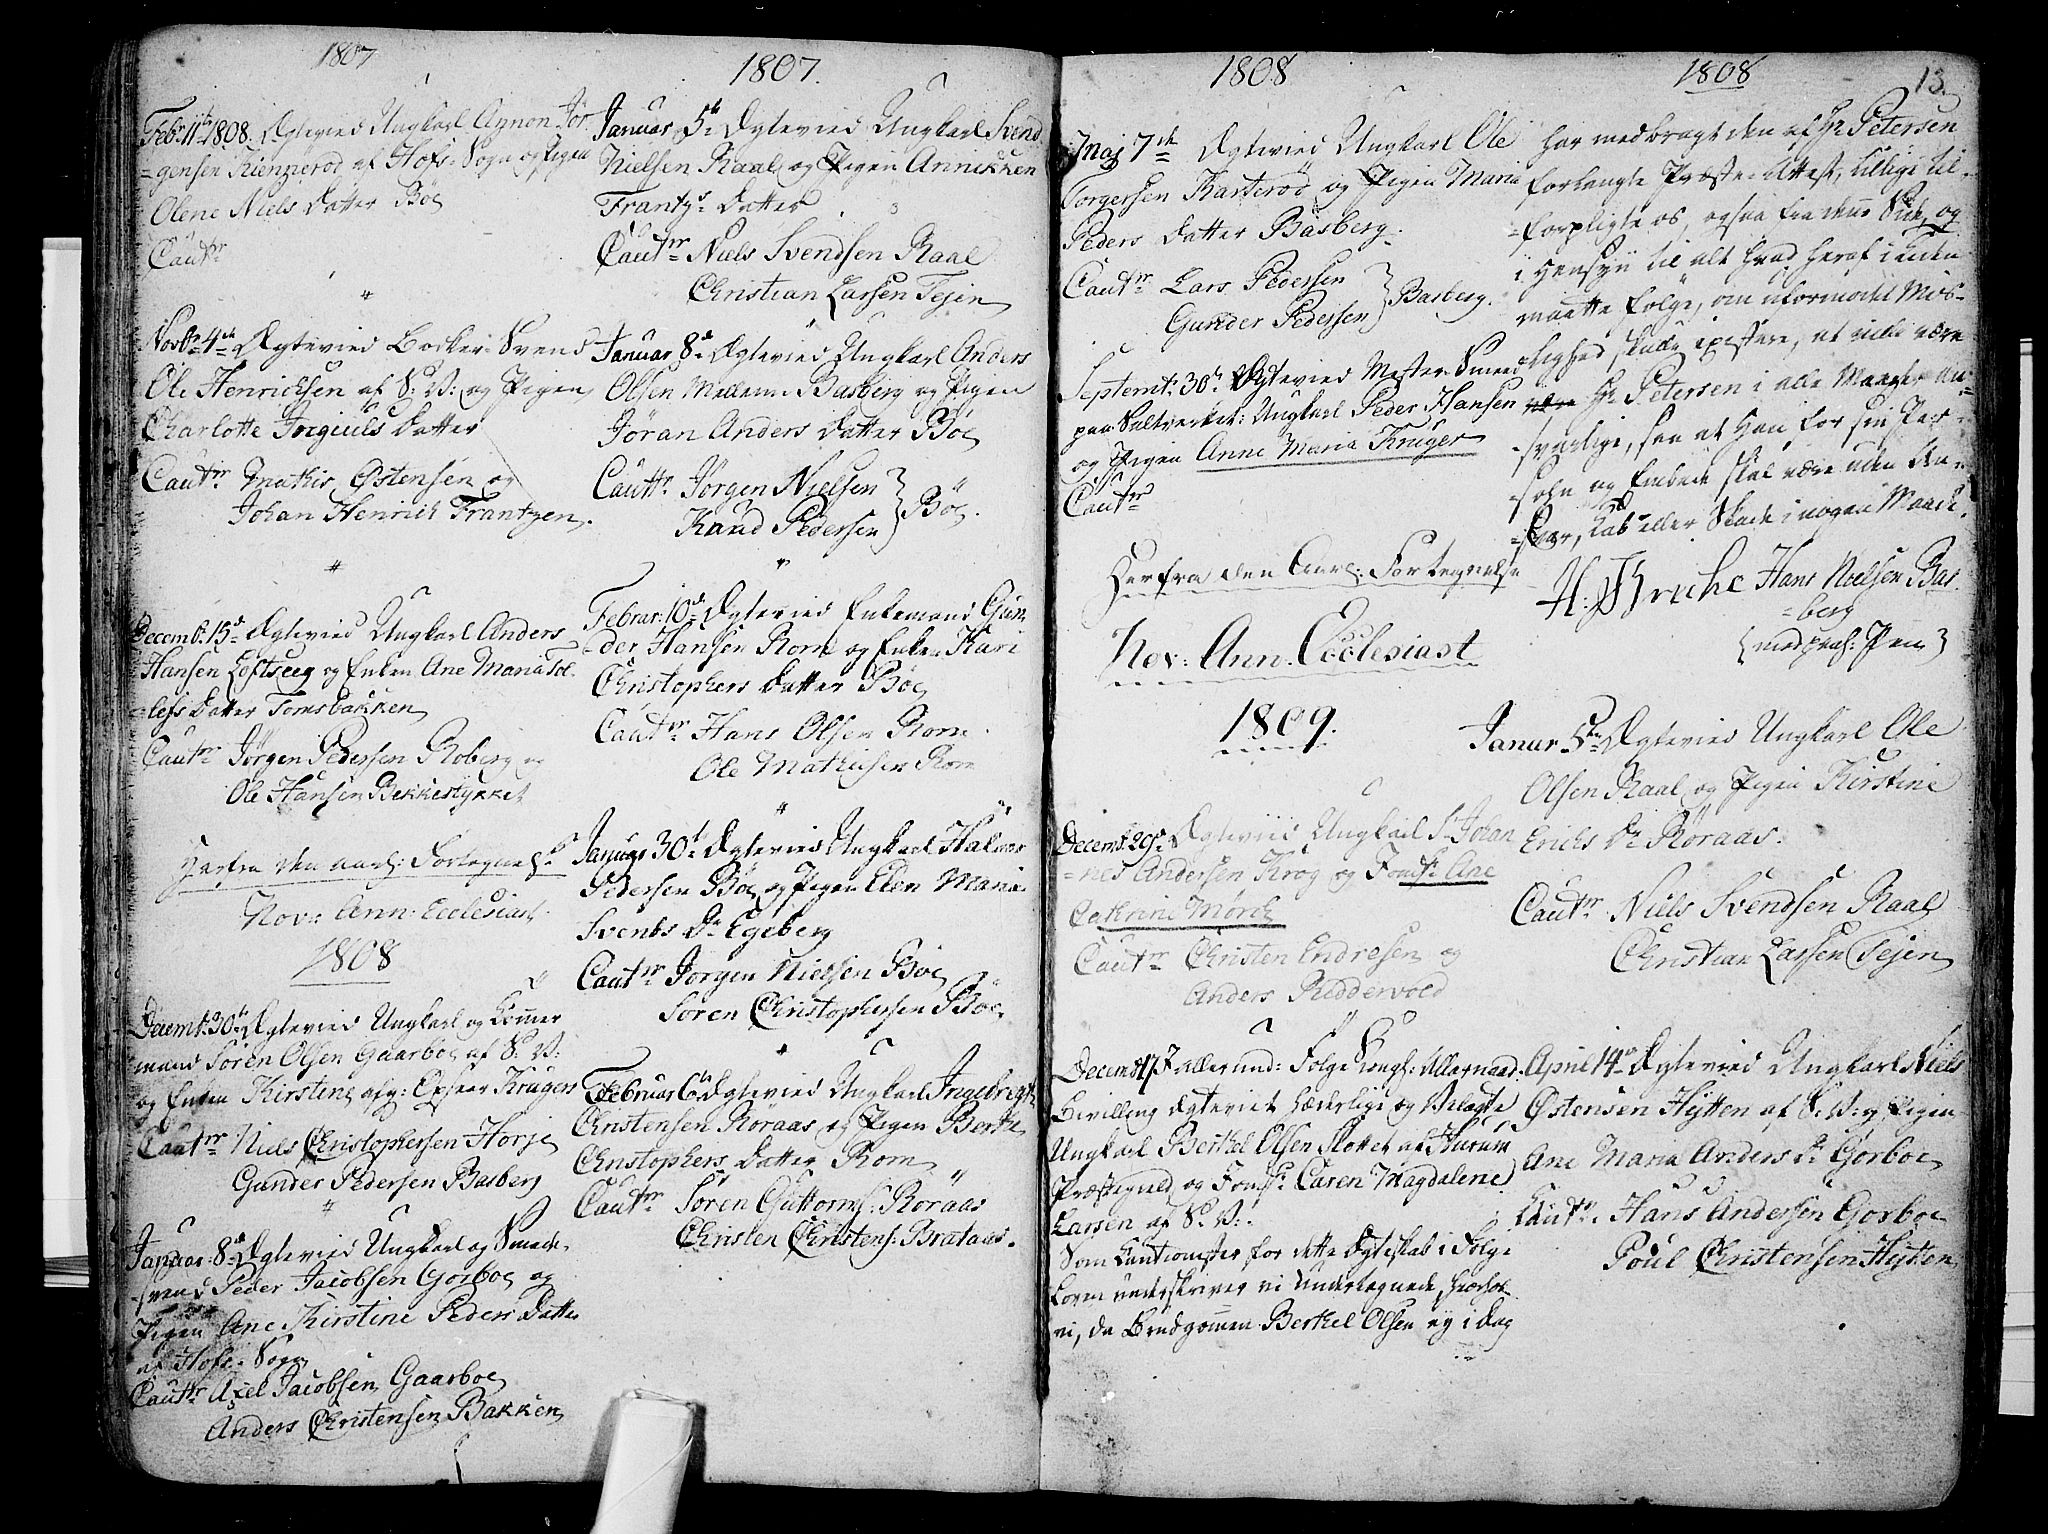 1807
Febr: 11te 1808. Ægteviet Ungkarl Aynon Jør
=gensen Kienperød af Hofs-Sogn og Pigen
Olene Niels Datter Böe
Cautr
Novbr 4de Ægteviet Bødker-Svend
Ole Henrichsen af S: V: og Pigen
Charlotte Jorgiuls Datter
Cautnr Mathis Østensen og
Johan Henrich Frantzen.
Decemb: 15d Ægteviet Ungkarl Anders
Hansen Løftseeg og Enken Ane Maria Tol
=lefs Datter Tomsbakken
Cautnr Jørgen Pedersen Roberg og
Ole Hansen Bekkestykket
Herfra den aarl: Fortegnels
Nov: Ann: Ecclesiast
1808
Decemt: 30te Ægteviet Ungkarl og Tømmer
mand Sören Olsen Gaarboe af S: V:
og Enken Kirstine afg: Casper Krugers
Cautnr Niels Christophersen Horje
Gunder Pedersen Basberg
Januar: 8d Ægteviet Ungkarl og Smede-
svend Peder Jacobsen Gorboe og
Pigen Ane Kirstine Peders Datter
af Hofs-Sogn
Cautnr Axel Jacobsen Gaarboe
Anders Christensen Bakken
1807.
Januar 5te Ægteviet Ungkarl Svend
Nielsen Raal og Pigen Annikken
Frantz: Datter
Cautnr Niels Svendsen Raal
Christian Larsen Tejen
Januar 8d Ægteviet Ungkarl Anders
Olsen Mellem-Basberg og Pigen
Jöran Anders Datter Böe
Cautnr Jörgen Nielsen
Knud Pedersen } Böe.
Februar: 10de Ægteviet Enkemand Gun
der Hansen Rom og Enken Kari
Christophers Datter Böe
Cautnr Hans Olsen Rom
Ole Mathiesen Rom
Januar 30te Ægteviet Ungkarl Halvor
Pedersen Böe og Pigen Elen Maria
Svends Dr Egeberg
Cautnr Jörgen Nielsen Böe
Sören Christophersen Böe
Februar 6te Ægteviet Ungkarl Ingebrigt
Christensen Röraas og Pigen Berthe
Christophers Datter Rom
Cautnr Sören Guttorms: Röraas
Christen Christens: Brataas.
1808
Maj 7de Ægteviet Ungkarl Ole
Torgersen Karteröd og Pigen Maria
Peders Datter Basberg.
Cautnr Lars Pedersen
Gunder Pedersen } Basberg.
Septemt: 30te Ægteviet Mester-Smeed
paa Saltverket: Ungkarl Peder Hansen
og Pigen Anne Maria Kruger
Cautnr
Herfra den Aarl: Fortegnelse
Nov: Ann. Ecclesiast
1809.
Decemb: 29de Ægteviet Ungkarl Sr Johan
=nes Andersen Krog og Jomfr: Ane
Cathrine Mörch
Cautnr Christen Endresen og
Anders Riddervold
Decemb 17. Efter allerund: Følge Kongl: Allernaad:
Bevilling Ægteviet Hæderlige og Velagte
Ungkarl Berthel Olsen Slottet af Hurum
Præstegield og Jomfr: Caren Magdalene
Larsen af S: V:.
Som Cautionister for dette Ægteskab i Følge
Loven underskriver vi Undertegnede, hvorhos
vi, da Brudgommen Berthel Olsen ey i dag
1808 13.
har medbragt den af Hr Petersen
forlangte Præste-Attest, tillige til-
=forpligte os, ogsaa fra denne Side og
i Hensyn til alt hvad heraf i Tiden
maatte følge, om uformodet Mis-
lighed skulle existere, at ville være
Hr Petersen i alle Maader an=
=svarlige, saa at Han for sin Per=
=sohn og Embede skal være uden An=
=svar, Tab eller Skade i nogen Maade.
H: Bruche Hans Nielsen Bas
=berg
{med paah: Pen}
Januar 5te Ægteviet Ungkarl Ole
Olsen Raal og Pigen Kirstine
Erichs Dr Röraas.
Cautnr Niels Svendsen Raal
Christian Larsen Tejen
April 14de Ægteviet Ungkarl Niels
Østensen Hytten af S: V: og Pigen
Ane Maria Anders Dr Gorboe
Cautnr. Hans Andersen Gorboe
Poul Christensen Hytten